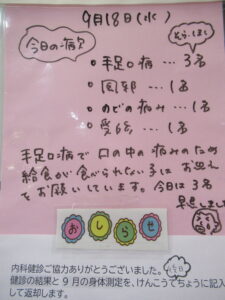 9月18日(水)
今日の病欠
手足口病…3名
風邪…1名
のどの痛み…1名
受診…1名
手足口病で口の中の痛みのため
給食が食べられない子にお迎え
をお願いしています。今日は3名
早退しました
おしらせ
内科健診ご協力ありがとうございました。
健診の結果と9月の身体測定を、けんこうてちょうに記入
して返却します。